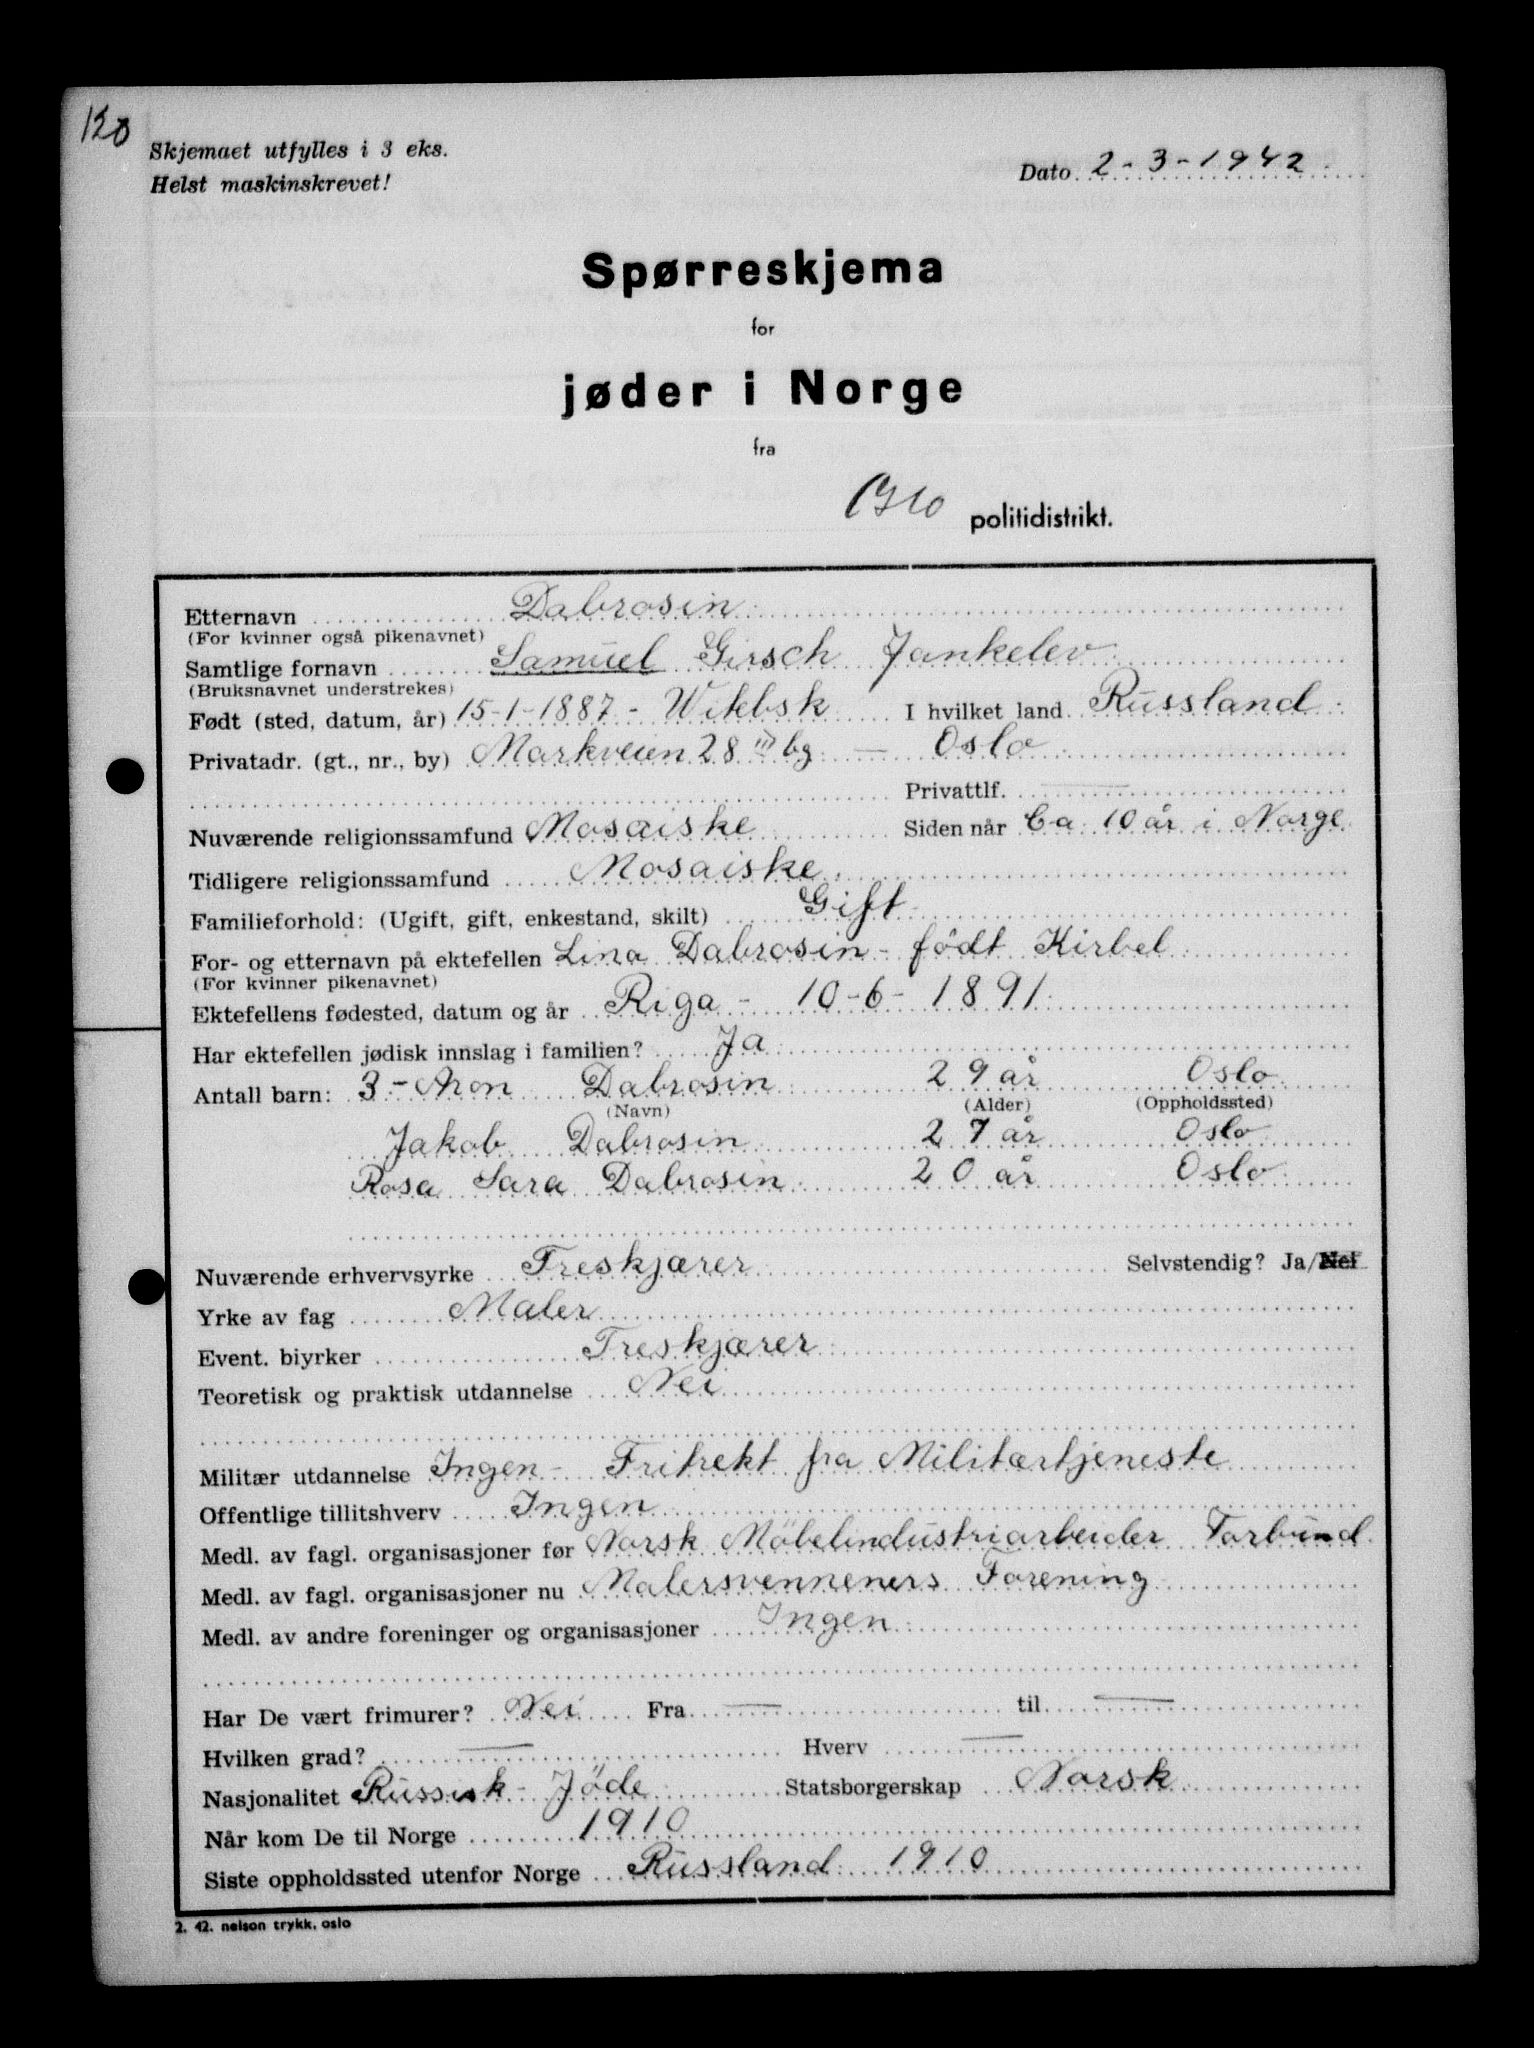 120
Skjemaet utfylles i 3 eks.
Helst maskinskrevet!
Dato 2-3-1942.
Spørreskjema
for
jøder i Norge
fra
Oslo politidistrikt.
Etternavn Dabrosin
(For kvinner også pikenavnet)
Samtlige fornavn Samuel Girsch Jankelev
(Bruksnavnet understrekes)
Født (sted, datum, år) 15-1-1887 - Witebsk I hvilket land Russland
Privatadr. (gt., nr., by) Markveien 28 III bg. — Oslo
Privattlf. —
Nuværende religionssamfund Mosaiske Siden når Ca 10 år i Norge
Tidligere religionssamfund Mosaiske
Familieforhold: (Ugift, gift, enkestand, skilt) Gift
For- og etternavn på ektefellen Lina Dabrosin - født Kirbel
(For kvinner pikenavnet)
Ektefellens fødested, datum og år Riga - 10-6-1891
Har ektefellen jødisk innslag i familien? Ja
Antall barn: 3 - Aron Dabrosin 29 år Oslo
(Navn) (Alder) (Oppholdssted)
Jakob Dabrosin 27 år Oslo
Rosa Sara Dabrosin 20 år Oslo
Nuværende erhvervsyrke Treskjærer Selvstendig? Ja/Nei
Yrke av fag Maler
Event. biyrker Treskjærer
Teoretisk og praktisk utdannelse Nei
Militær utdannelse Ingen - Fritrekt fra Militærtjeneste
Offentlige tillitshverv Ingen
Medl. av fagl. organisasjoner før Norsk Möbelindustriarbeider Forbund
Medl. av fagl. organisasjoner nu Malersvenneners Forening
Medl. av andre foreninger og organisasjoner Ingen
Har De vært frimurer? Nei Fra — til —
Hvilken grad? — Hverv —
Nasjonalitet Russisk - Jöde Statsborgerskap Norsk
Når kom De til Norge 1910
Siste oppholdssted utenfor Norge Russland 1910
2. 42. nelson trykk, oslo